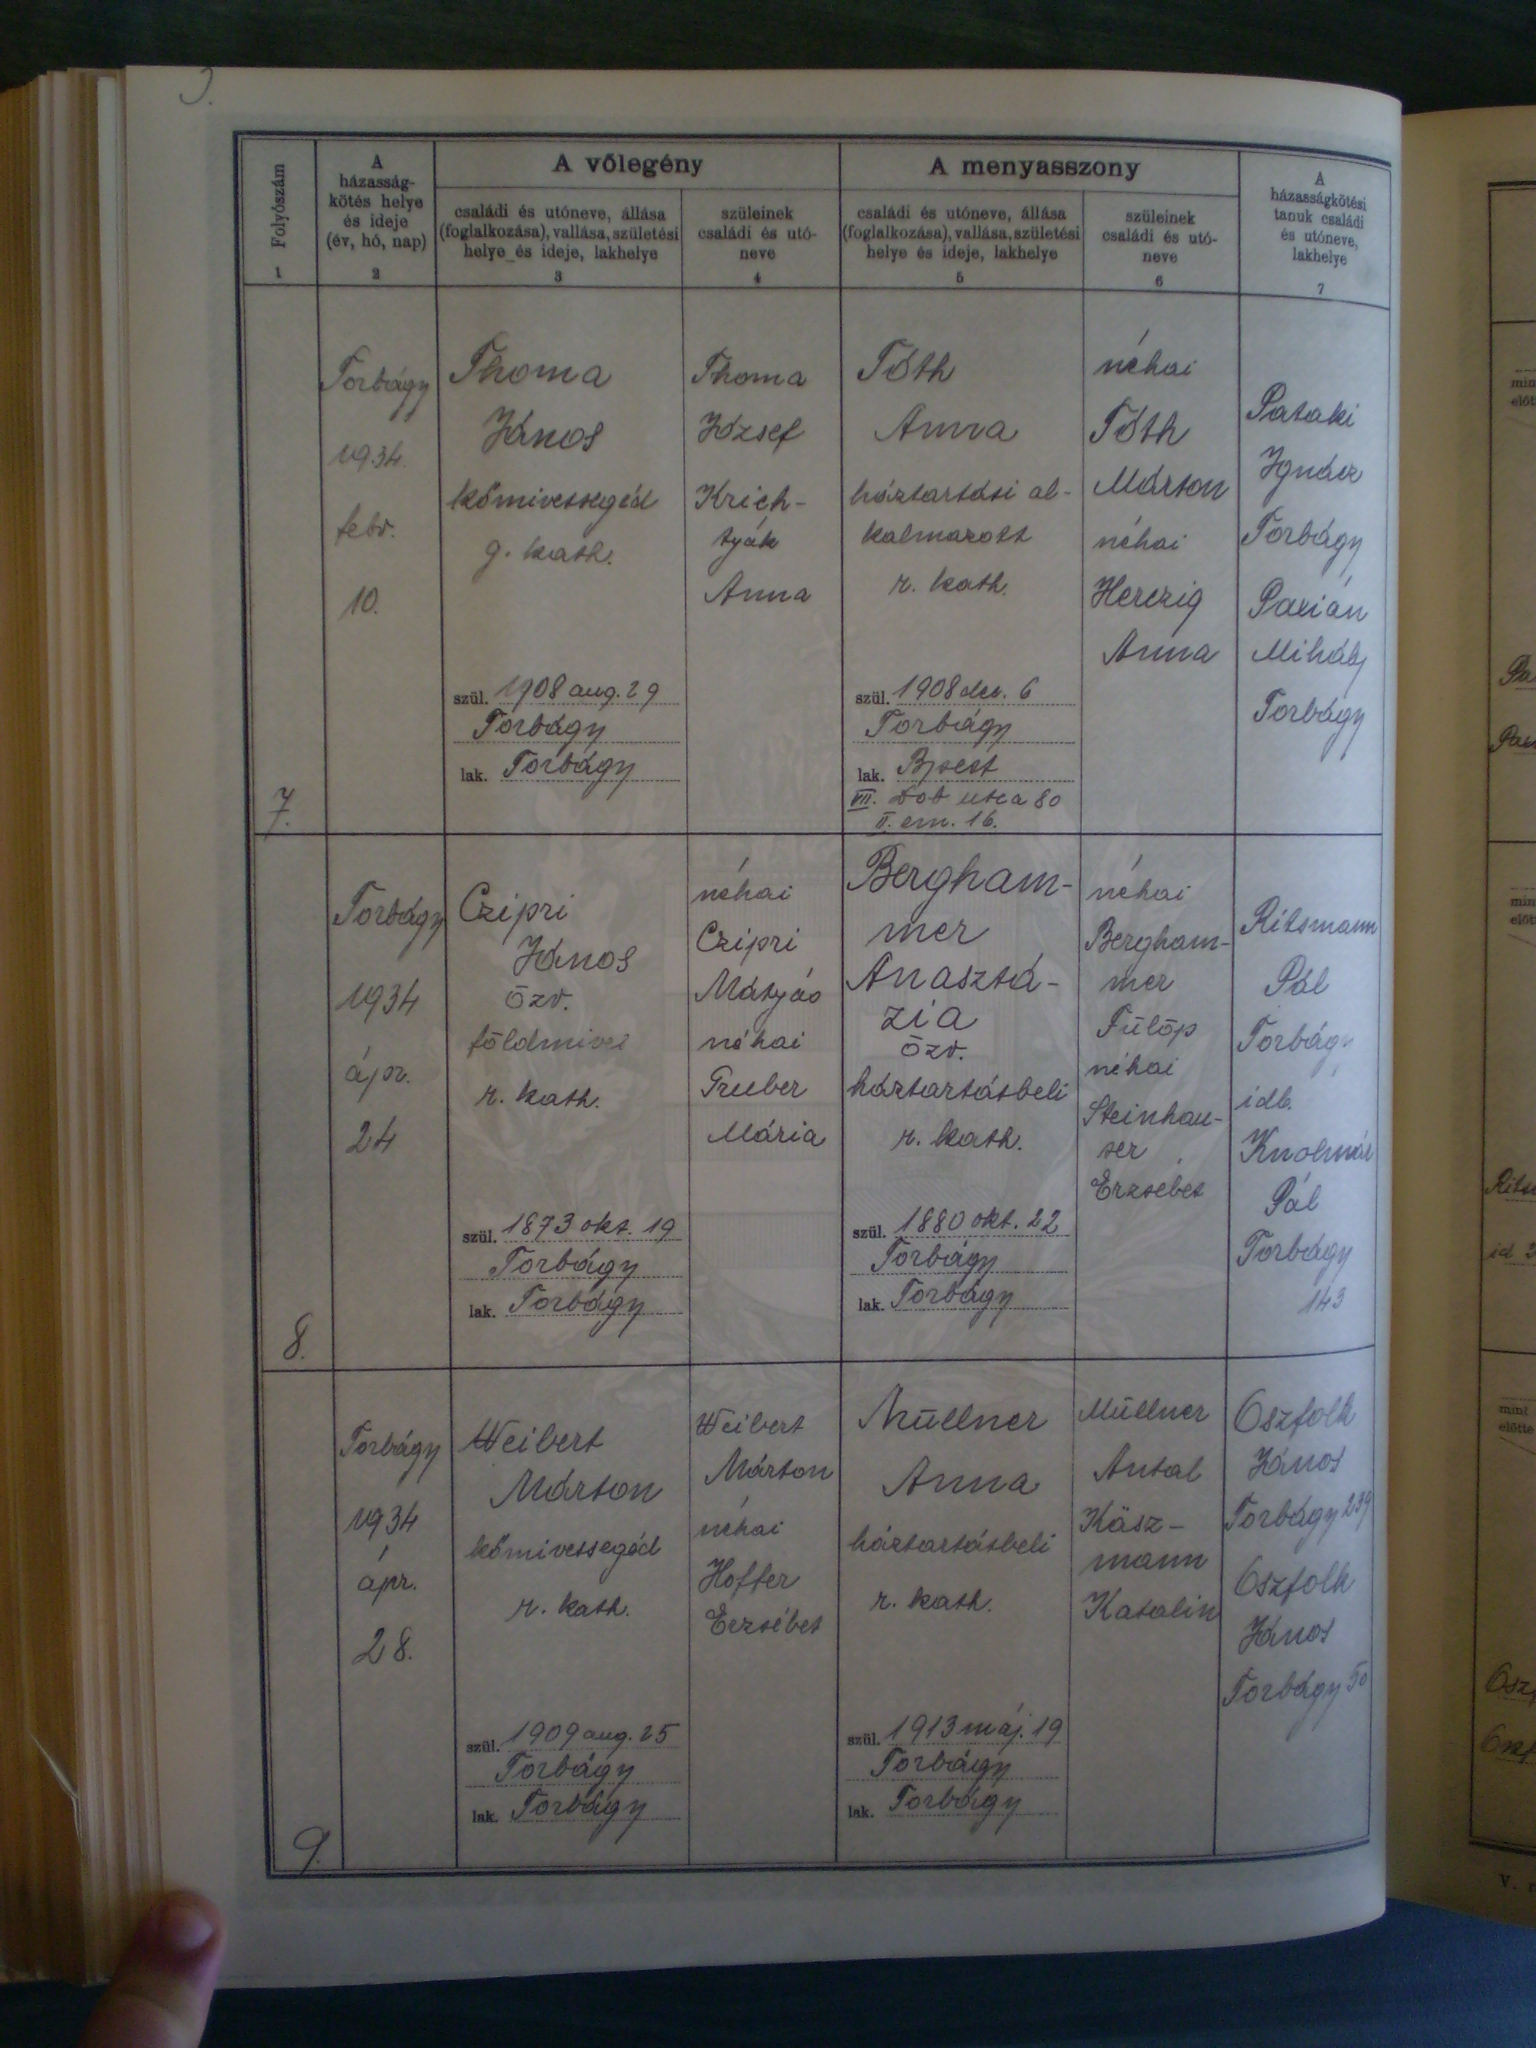 3.
A vőlegény
A menyasszony
Folyószám
1
A
házasság-
kötés helye
és ideje
(év, hó, nap)
2
családi és utóneve, állása
(foglalkozása), vallása, születési
helye és ideje, lakhelye
3
szüleinek
családi és utó-
neve
4
családi és utóneve, állása
(foglalkozása), vallása, születési
helye és ideje, lakhelye
5
szüleinek
családi és utó-
neve
6
A
házasságkötési
tanuk családi
és utóneve,
lakhelye
7
7.
Torbágy
1934.
febr.
10.
Thoma
János
kőmivessegéd
g. kath.
szül. 1908 aug. 29
Torbágy
lak. Torbágy
Thoma
József
Krich-
tyák
Anna
Tóth
Anna
háztartási al-
kalmazott
r. kath.
szül. 1908 dec. 6
Torbágy
lak. Bpest
VII. Dob utca 80
II. em. 16.
néhai
Tóth
Márton
néhai
Herczig
Anna
Pataki
Ignácz
Torbágy
Pazián
Mihály
Torbágy
8.
Torbágy
1934
ápr.
24
Czipri
János
özv.
földmives
r. kath.
szül. 1873 okt. 19
Torbágy
lak. Torbágy
néhai
Czipri
Mátyás
néhai
Gruber
Mária
Bergham-
mer
Anasztá-
zia
özv.
háztartásbeli
r. kath.
szül. 1880 okt. 22
Torbágy
lak. Torbágy
néhai
Bergham-
mer
Fülöp
néhai
Steinhau-
ser
Erzsébet
Ritsmann
Pál
Torbágy
idb.
Knolmár
Pál
Torbágy
143
9.
Torbágy
1934
ápr.
28.
Weibert
Márton
kőmivessegéd
r. kath.
szül. 1909 aug. 25
Torbágy
lak. Torbágy
Weibert
Márton
néhai
Hoffer
Erzsébet
Müllner
Anna
háztartásbeli
r. kath.
szül. 1913 máj. 19
Torbágy
lak. Torbágy
Müllner
Antal
Käsz-
mann
Katalin
Oszfolk
János
Torbágy 239
Oszfolk
János
Torbágy 50